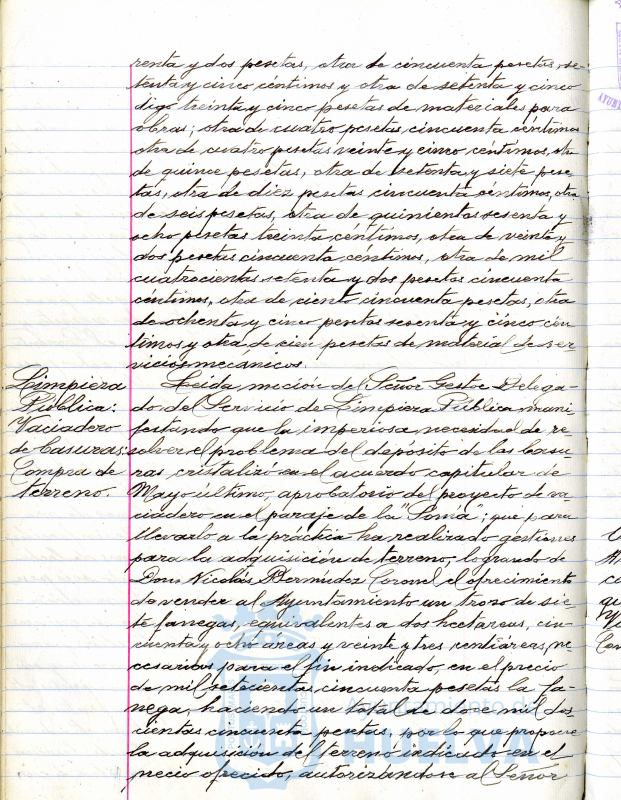 renta y dos pesetas, otra de cincuenta pesetas, se-
tenta y cinco céntimos y otra de setenta y cinco
digo treinta y cinco pesetas de materiales para
obras; otra de cuatro pesetas, cincuenta céntimos
otra de cuatro pesetas veinte y cinco céntimos, otra
de quince pesetas, otra de setenta y siete pese-
tas, otra de diez pesetas cincuenta céntimos, otra
de seis pesetas, otra de quinientos sesenta y
ocho pesetas treinta céntimos, otra de veinte y
dos pesetas cincuenta céntimos, otra de mil
cuatrocientas setenta y dos pesetas cincuenta
céntimos, otra de ciento cincuenta pesetas, otra
de ochenta y cinco pesetas sesenta y cinco cén-
timos y otra de cien pesetas de material de ser-
vicios mecánicos.
Limpieza
Pública:
Vaciadero
de basuras:
Compra de
terreno.
Leida moción del Señor Gestor Delega-
do del Servicio de Limpieza Pública mani-
festando que la imperiosa necesidad de re-
solver el problema del depósito de las basu-
ras cristalizó en el acuerdo capitular de
Mayo último, aprobatorio del proyecto de va-
ciadero en el paraje de la
que para
llevarlo a la práctica ha realizado gestiones
para la adquisición de terreno, logrando de
Don Nicolás Bermúdez Coronel el ofrecimiento
de vender al Ayuntamiento un trozo de sie-
te fanegas, equivalentes a dos hectareas, cin-
cuenta y ocho areas y veinte y tres centiáreas, ne-
cesarias para el fin indicado, en el precio
de mil setecientas cincuenta pesetas la fa-
nega, haciendo un total de doce mil dos-
cientas cincuenta pesetas, por lo que propone
la adquisición del terreno indicado en el
precio ofrecido, autorizándose al Señor
Ayuntamiento de
HUELVA